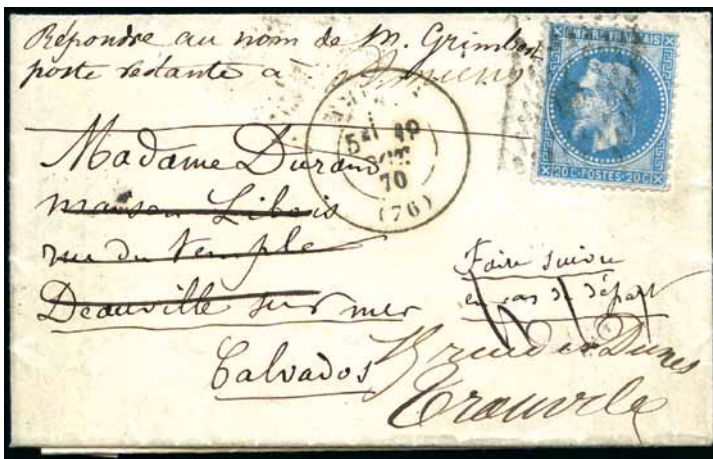 Répondre au nom de M. Grimbert
poste restante à Amiens
EMPIRE FRANÇAIS
20 C. POSTES 20 C.
5E 
OCT.
70
(76)
Madame Durand
maison Libois
rue du temple
Deauville sur mer
Calvados
Faire suivre
en cas de départ
rue des Dunes
Trouville